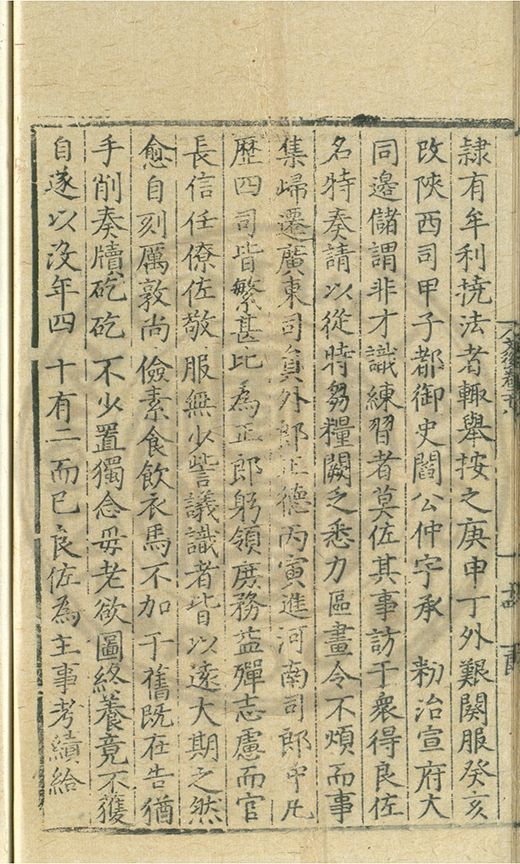 隷有牟利撓法者輙舉按之庚申丁外艱闋服癸亥
改陝西司甲子都御史閻公仲宇承 勑治宣府大
同邊儲謂非才識練習者莫佐其事訪于衆得良佐
名特奏請以從特芻糧闕乏悉力區畫令不煩而事
集歸遷廣東司員外郎正德丙寅進河南司郎中凡
歷四司皆繁甚比為正郎躬領庶務益殫志慮而官
長信任僚佐敬服無少訾議識者皆以遠大期之然
愈自刻厲敦尚儉素食飲衣馬不加于舊既在告猶
手削奏牘矻矻不少置獨念母老欲圖終養竟不獲
自遂以沒年四十有二而已良佐為主事考績給